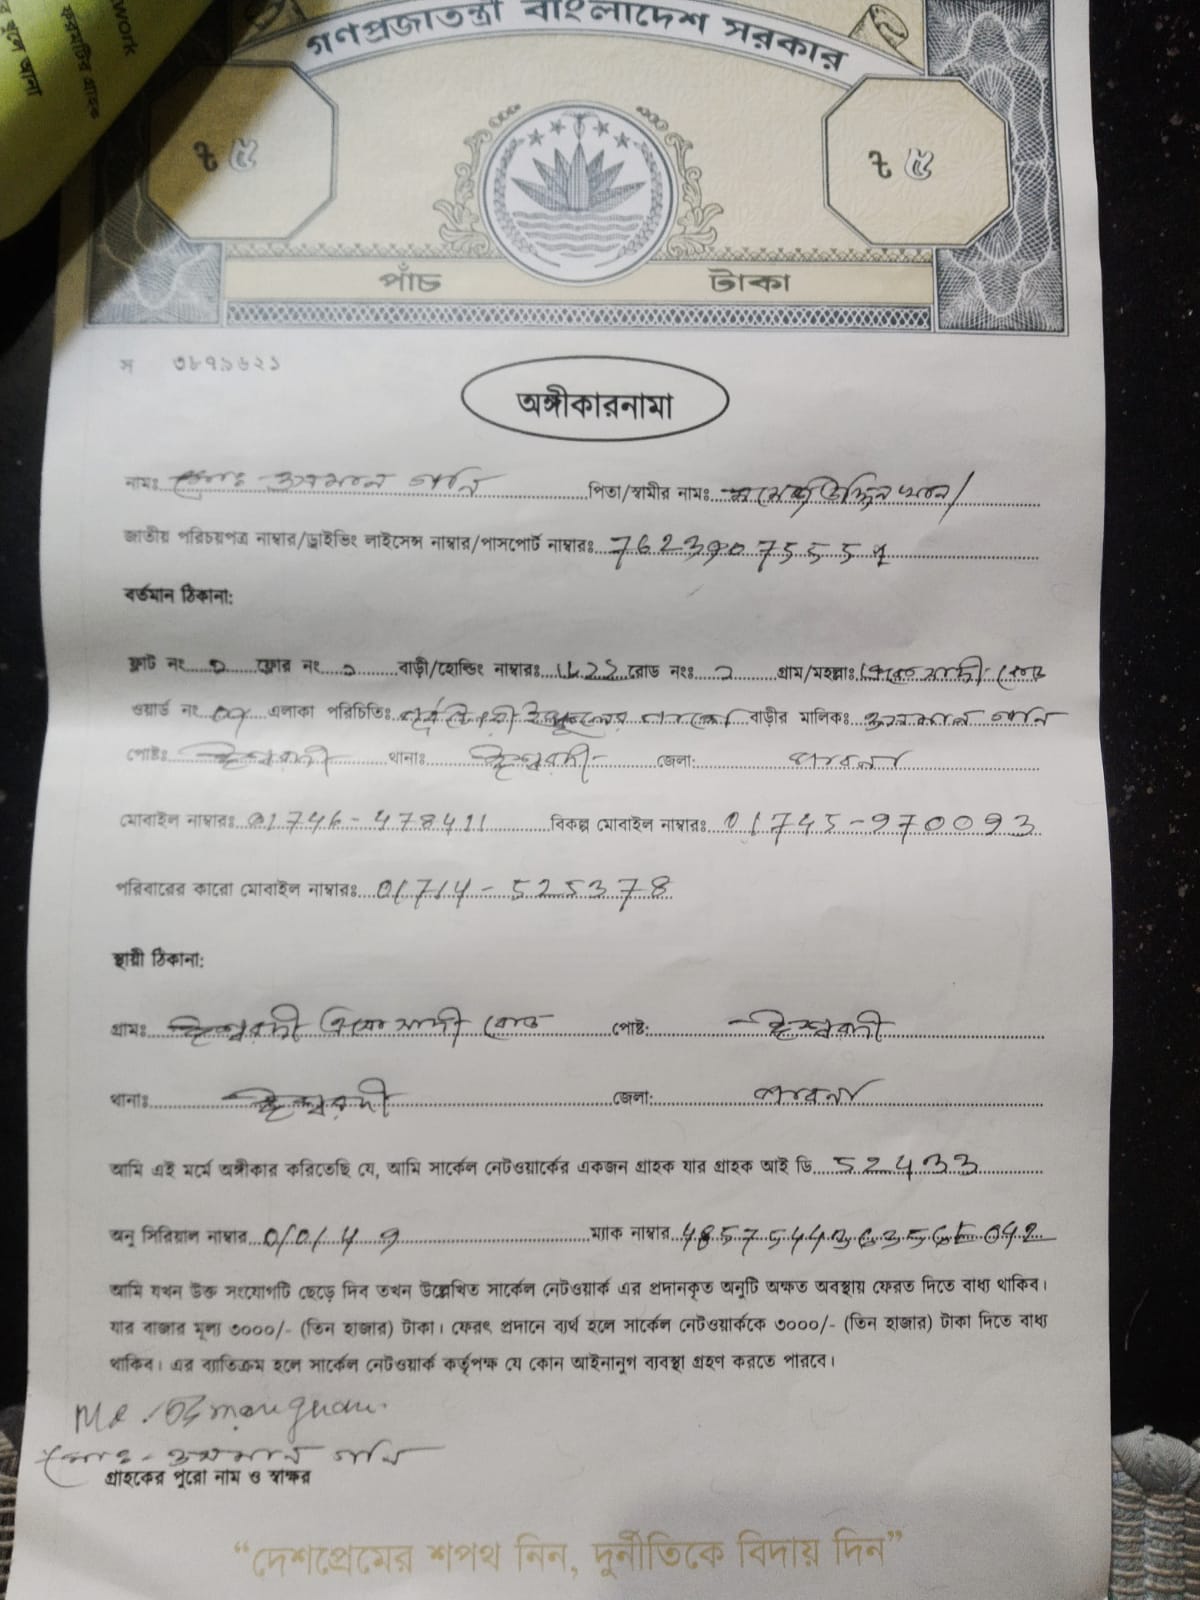 work
ফরমটির গ্রাহক
গণপ্রজাতন্ত্রী বাংলাদেশ সরকার
৳ ৫
৳ ৫
পাঁচ টাকা
স ৩৮৭৯৬২১
অঙ্গীকারনামা
নামঃ মোঃ ওসমান গনি পিতা/স্বামীর নামঃ
জাতীয় পরিচয়পত্র নাম্বার/ড্রাইভিং লাইসেন্স নাম্বার/পাসপোর্ট নাম্বারঃ
বর্তমান ঠিকানা:
ফ্লাট নং ফ্লোর নং বাড়ী/হোল্ডিং নাম্বারঃ রোড নংঃ গ্রাম/মহল্লাঃ রোড
ওয়ার্ড নং এলাকা পরিচিতিঃ বাড়ীর মালিকঃ ওসমান গনি
পোষ্টঃ ঈশ্বরদী থানাঃ ঈশ্বরদী জেলা: পাবনা
মোবাইল নাম্বারঃ 01746-478411 বিকল্প মোবাইল নাম্বারঃ 01745-970093
পরিবারের কারো মোবাইল নাম্বারঃ 01714-525378
স্থায়ী ঠিকানা:
গ্রামঃ ঈশ্বরদী রোড পোষ্ট: ঈশ্বরদী
থানাঃ ঈশ্বরদী জেলা: পাবনা
আমি এই মর্মে অঙ্গীকার করিতেছি যে, আমি সার্কেল নেটওয়ার্কের একজন গ্রাহক যার গ্রাহক আই ডি 52433
অনু সিরিয়াল নাম্বার ম্যাক নাম্বার
আমি যখন উক্ত সংযোগটি ছেড়ে দিব তখন উল্লেখিত সার্কেল নেটওয়ার্ক এর প্রদানকৃত অনুটি অক্ষত অবস্থায় ফেরত দিতে বাধ্য থাকিব।
যার বাজার মূল্য ৩০০০/- (তিন হাজার) টাকা। ফেরৎ প্রদানে ব্যর্থ হলে সার্কেল নেটওয়ার্ককে ৩০০০/- (তিন হাজার) টাকা দিতে বাধ্য
থাকিব। এর ব্যতিক্রম হলে সার্কেল নেটওয়ার্ক কর্তৃপক্ষ যে কোন আইনানুগ ব্যবস্থা গ্রহণ করতে পারবে।
মোঃ-ওসমান গনি
গ্রাহকের পুরো নাম ও স্বাক্ষর
“দেশপ্রেমের শপথ নিন, দুর্নীতিকে বিদায় দিন”